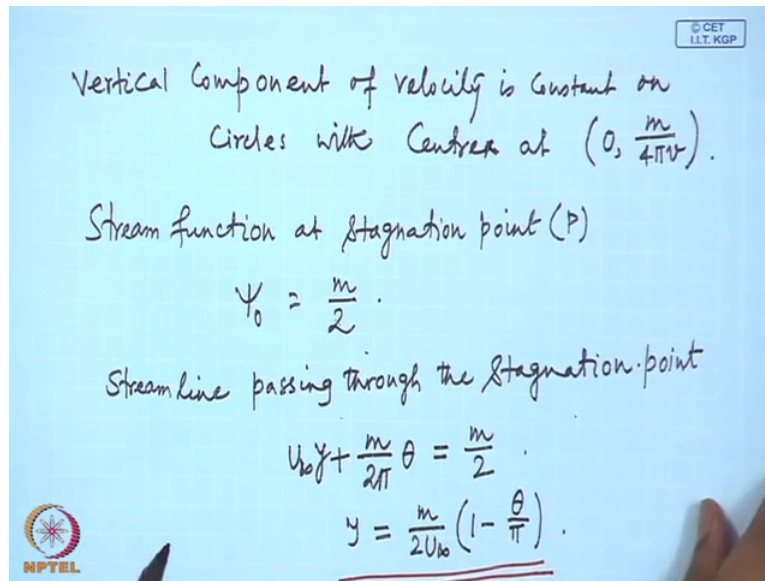 © CET
I.I.T. KGP
Vertical Component of velocity is constant on
Circles with Centres at (0, m/4πv).
Stream function at stagnation point (P)
Ψ₀ = m/2 .
Streamline passing through the stagnation point
U∞y + m/2π θ = m/2 .
y = m/2U∞ (1 - θ/π) .
NPTEL